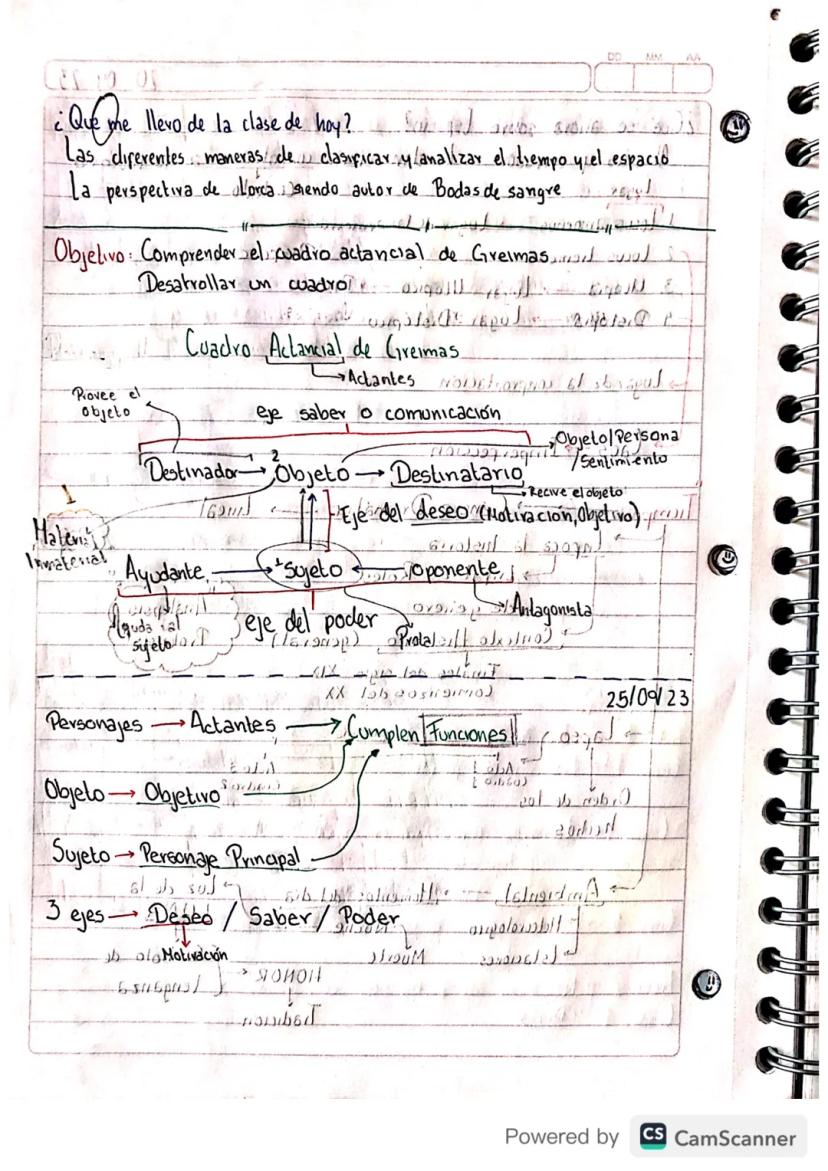 DD MM AA
¿Que me llevo de la clase de hoy?
Las diferentes maneras de clasificar y analizar el tiempo y el espacio
La perspectiva de Lorca siendo autor de Bodas de sangre
Objetivo: Comprender el cuadro actancial de Greimas
Desarrollar un cuadro
Cuadro Actancial de Greimas
Actantes
Provee el
objeto
eje saber o comunicación
Objeto/Persona
/Sentimiento
Destinador → 2 Objeto → Destinatario
Recive el objeto
1
Eje del deseo (Motivación, Objetivo)
Material
Inmaterial
Ayudante → 1 Sujeto ← oponente
Antagonista
Ayuda al
sujeto
eje del poder
Prota
25/09/23
Personajes → Actantes → Cumplen Funciones
Objeto → Objetivo
Sujeto → Personaje Principal
3 ejes → Deseo / Saber / Poder
Motivación
Powered by CS CamScanner